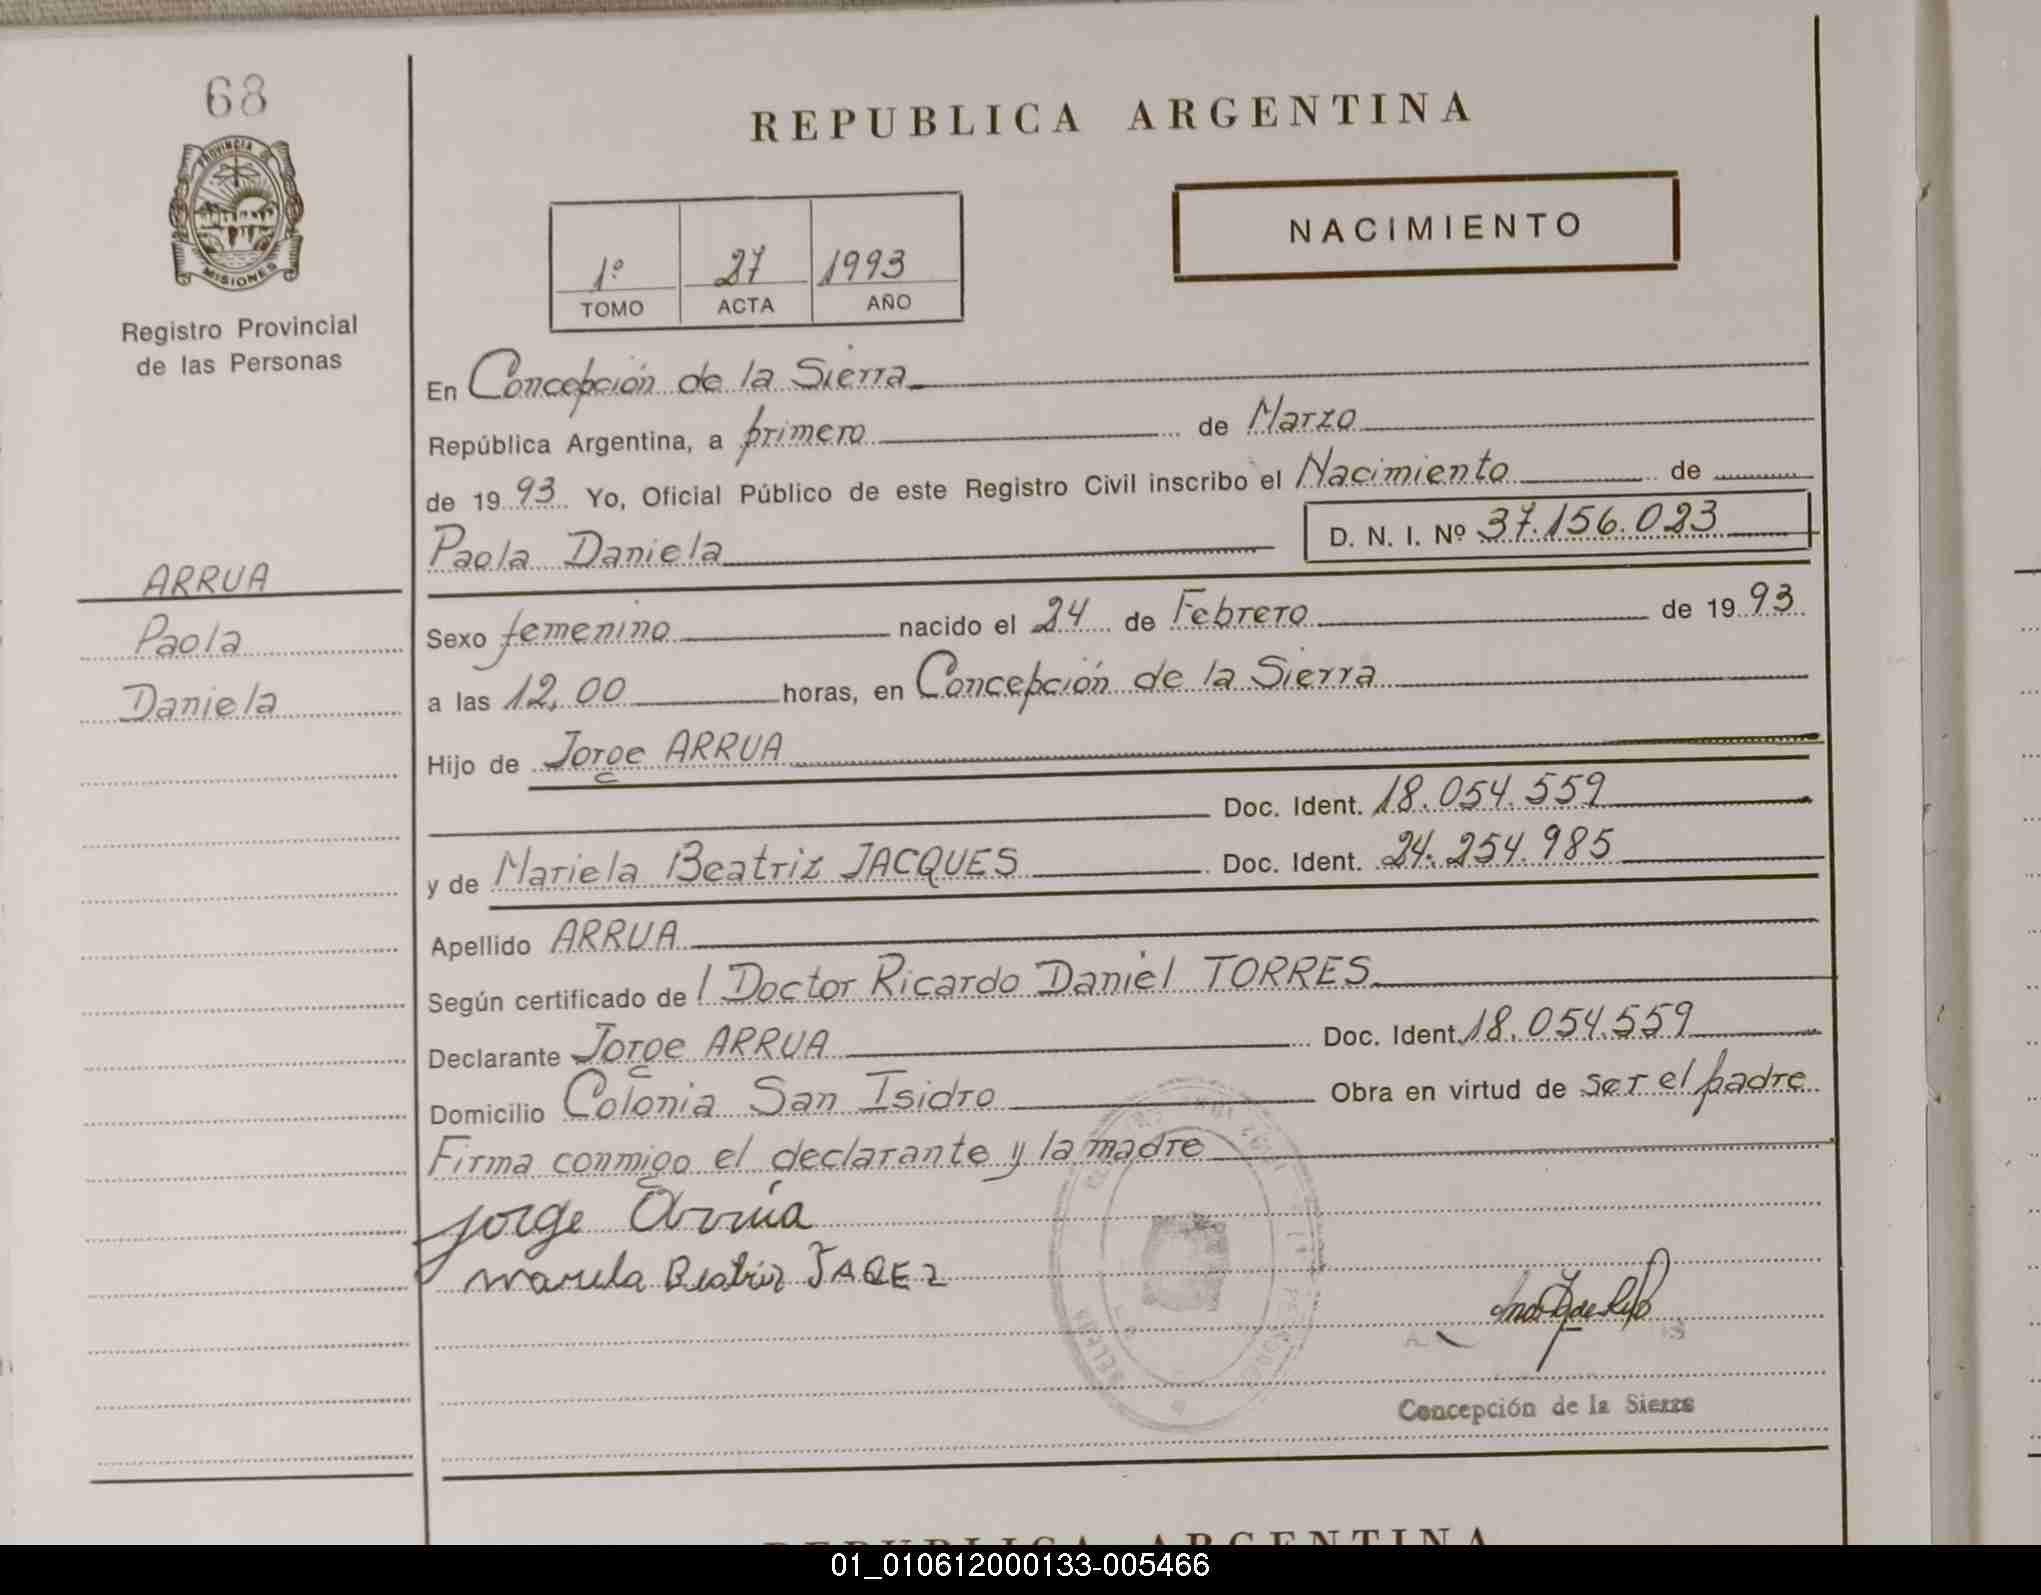 68
PROVINCIA DE
MISIONES
Registro Provincial
de las Personas
ARRUA
Paola
Daniela
REPUBLICA ARGENTINA
NACIMIENTO
1º 27 1993
TOMO ACTA AÑO
En Concepción de la Sierra
República Argentina, a primero de Marzo
de 1993 Yo, Oficial Público de este Registro Civil inscribo el Nacimiento de
Paola Daniela D. N. I. Nº 37.156.023
Sexo femenino nacido el 24 de Febrero de 1993
a las 12,00 horas, en Concepción de la Sierra
Hijo de Jorge ARRUA
Doc. Ident. 18.054.559
y de Mariela Beatriz JACQUES Doc. Ident. 24.254.985
Apellido ARRUA
Según certificado de l Doctor Ricardo Daniel TORRES
Declarante Jorge ARRUA Doc. Ident. 18.054.559
Domicilio Colonia San Isidro Obra en virtud de ser el padre
Firma conmigo el declarante y la madre
Jorge Arrúa
Mariela Beatriz JAQEZ
Concepción de la Sierra
REPUBLICA ARGENTINA
01_010612000133-005466